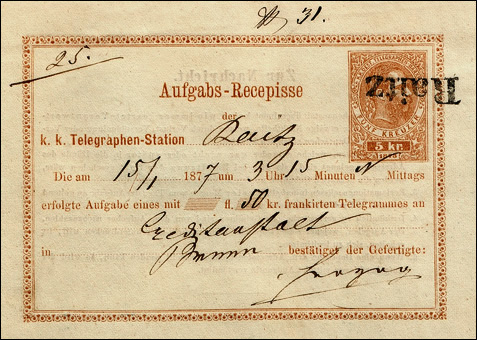 N 31.
25.
Aufgabs-Recepisse
der
k. k. Telegraphen-Station Raitz
Die am 15/1 1877 um 3 Uhr 15 Minuten N Mittags
erfolgte Aufgabe eines mit fl. 50 kr. frankirten Telegrammes an
Creditanstalt
in Brünn bestätiget der Gefertigte:
Herzog
FÜNF KREUZER
5 Kr.
1873
Raitz